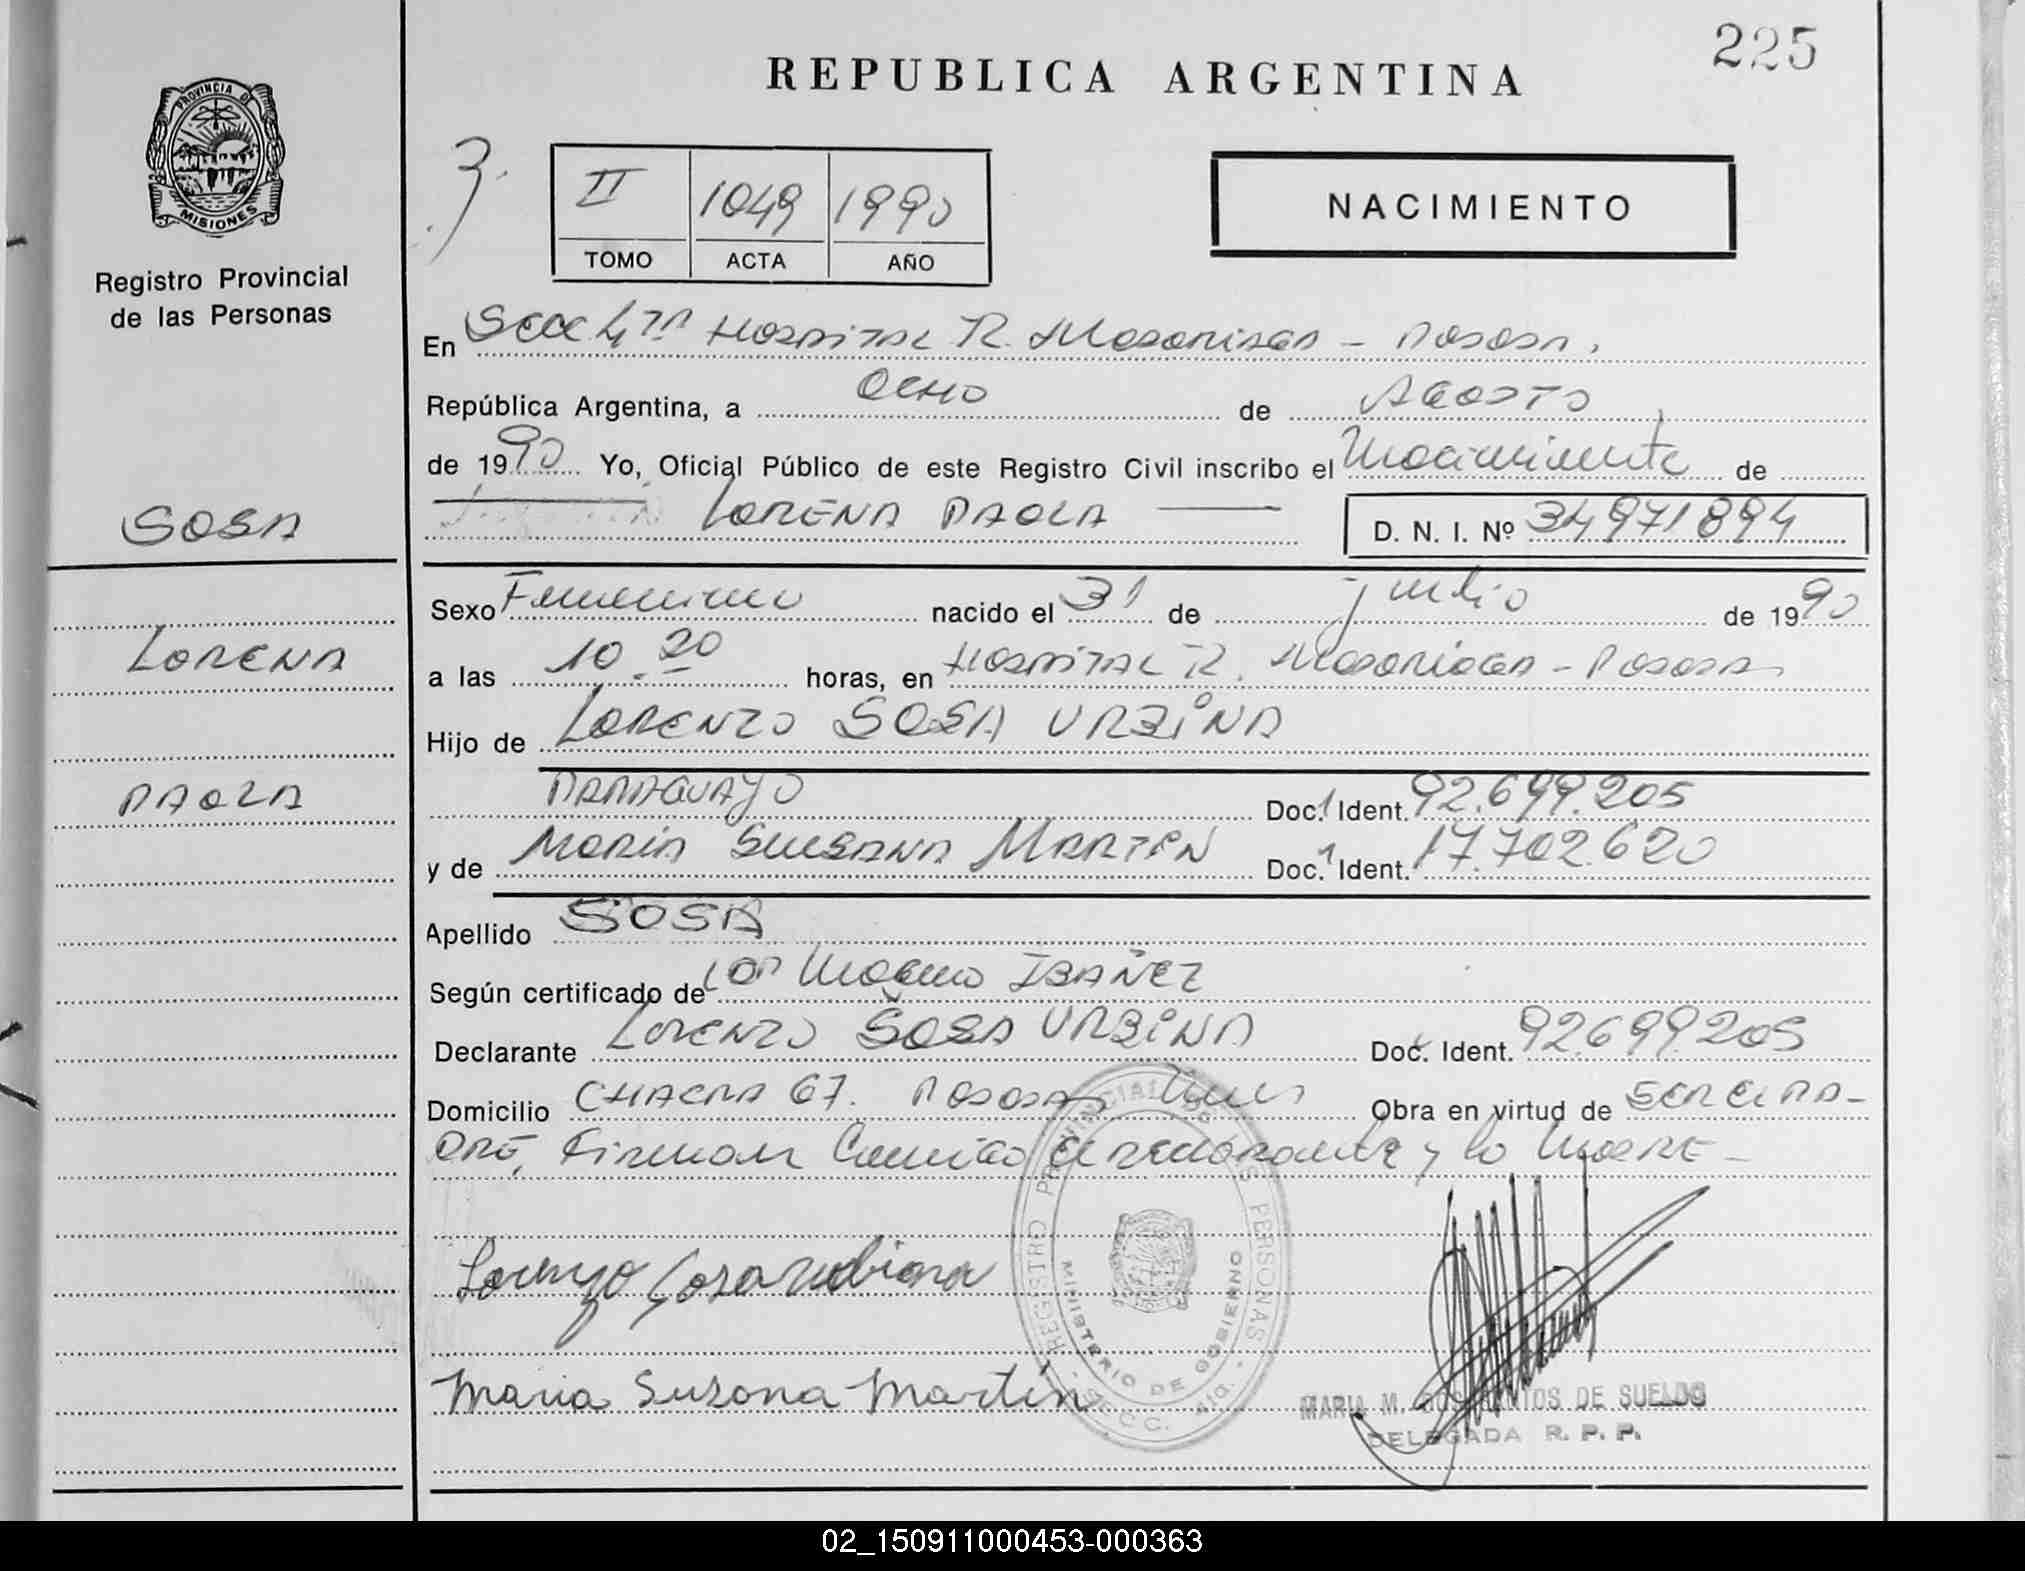 225
REPUBLICA ARGENTINA
PROVINCIA DE
MISIONES
Registro Provincial
de las Personas
3.
II 1049 1990
TOMO ACTA AÑO
NACIMIENTO
En Secc 4ta Hospital R. Madariaga - Posadas.
República Argentina, a Ocho de Agosto
de 1990 Yo, Oficial Público de este Registro Civil inscribo el Nacimiento de
LORENA PAOLA
D. N. I. Nº 34971894
SOSA
LORENA
PAOLA
Sexo Femenino nacido el 31 de julio de 1990
a las 10.20 horas, en Hospital R. Madariaga - Posadas
Hijo de LORENZO SOSA URBINA
PARAGUAYO Doc. Ident. 92.699.205
y de MARIA SUSANA MARTIN Doc. Ident. 17.702.620
Apellido SOSA
Según certificado de IBAÑEZ
Declarante LORENZO SOSA URBINA Doc. Ident. 92699205
Domicilio CHACRA 67. POSADAS Obra en virtud de SER EL PA-
DRE, Firman Conmigo el declarante y la Madre -
Lorenzo Sosa Urbina
Maria Susana Martín
REGISTRO PROVINCIAL DE LAS PERSONAS
MINISTERIO DE GOBIERNO
SECC. 4ta.
MARIA M. DOS SANTOS DE SUELDO
DELEGADA R. P. P.
02_150911000453-000363